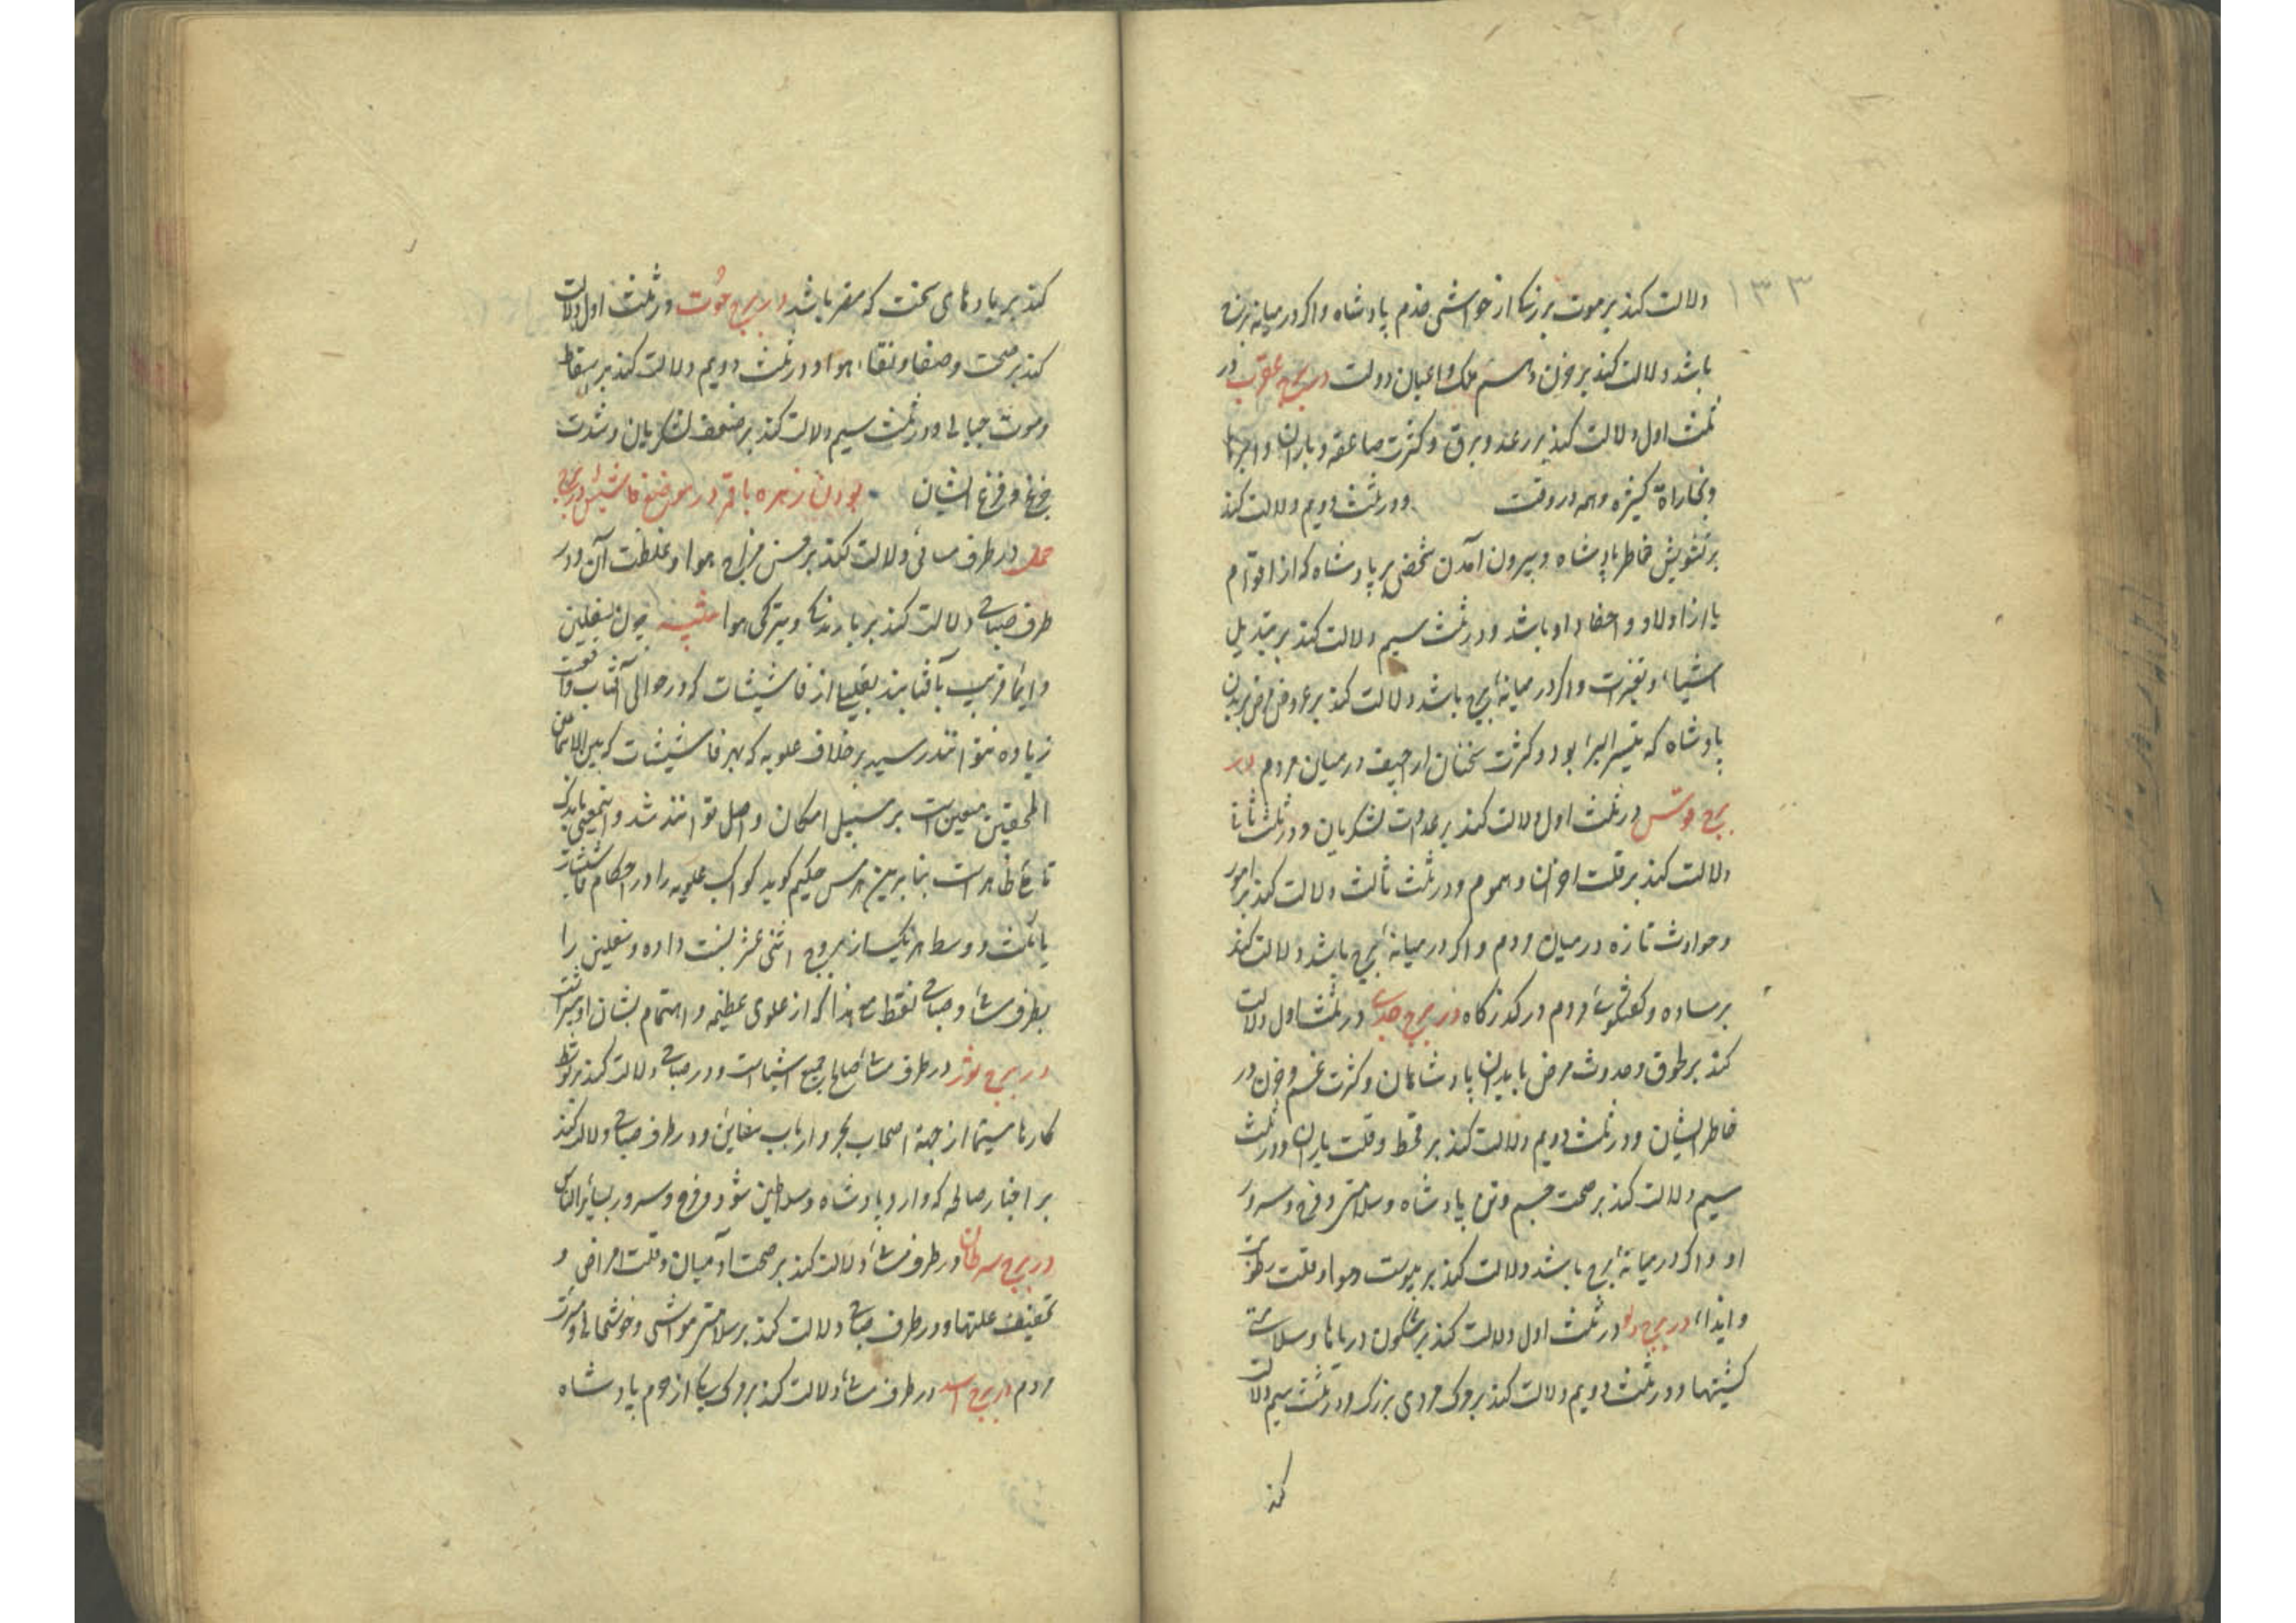 ۱۳۳
دلالت کند بر موت بزرگی از خواشی خدم پادشاه و اکر در میانه برج
باشد دلالت کند بر حزن و هم ملک و اعیان دولت در برج عقرب در
ثلث اول دلالت کند بر رعد و برق و کثرت صاعقه و باران و ابرها
و بخاراة کثیره و همه در وقت و در ثلث دویم دلالت کند
بر تشویش خاطر پادشاه و بیرون آمدن شخصی بر پادشاه که از اقوام
یا از اولاد و احفاد او باشد و در ثلث سیم دلالت کند بر تبدیل
اشیاء و تغیرات و اکر در میانهٔ برج باشد دلالت کند بر عروض مرض ببدن
پادشاه که متیسر البرء بود و کثرت سخنان اراجیف در میان مردم در
برج قوس در ثلث اول دلالت کند بر عداوت لشکریان و در ثلث
دلالت کند بر قلت احزان و هموم و در ثلث ثالث دلالت کند بر امور
و حوادث تازه در میان مردم و اکر در میانهٔ برج باشد دلالت کند
بر ساده و کفتکوی مردم در کذرکاه در برج جدی در ثلث اول دلالت
کند بر طوق و حدوث مرض بابدان پادشاهان و کثرت غم و حزن در
خاطر ایشان و در ثلث دویم دلالت کند بر قحط و قلت باران و در ثلث
سیم دلالت کند بر صحت جسم و تن پادشاه و سلامتی و فرح و سرور
او و اکر در میانهٔ برج باشد دلالت کند بر یبوست هوا و قلت رطوبت
و انداء در برج دلو در ثلث اول دلالت کند بر سکون دریاها و سلامتی
کشتیها و در ثلث دویم دلالت کند بر موت مردی بزرک و در ثلث سیم دلالت
کند
کند بر بادهای سخت که مضر باشد در برج حوت در ثلث اول دلالت
کند بر صحت و صفا و نقاء هوا و در ثلث دویم دلالت کند بر سقط
و موت حبالی و در ثلث سیم دلالت کند بر ضعف لشکریان و شدت
جزع و فزع ایشان بودن زهره با قمر در موضع فاشیشات در برج
حمل در طرف مسائی دلالت کند بر حسن مزاج هوا و غلظت آن و در
طرف صباحی دلالت کند بر بارندکی و تیرکی هوا تنبیه چون سفلین
دایما قریب بآفتابند بغیر از فاشیشات که در حوالی آفتاب واقعست
زیاده نتوانند رسید بر خلاف علویه که بهر فاشیشات که بین الاسمان
المحققین معین است بر سبیل امکان واصل توانند شد و اینمعنی باندک
تاملی ظاهر است بنابرین هرمس حکیم کوید کواکب علویه را در احکام فاشیشات
باثلث و وسط هر یک از بروج اثنی عشر نسبت داده و سفلین را
بطرف مسائی و صباحی فقط مع هذا که از علوی عظیمه و اهتمام بشان او بیشتر است
در برج ثور در طرف مسائی صالح جمیع اشیا است و در صباحی دلالت کند بر توسط
کارها سیما از جهة اصحاب بحر و ارباب سفاین و در طرف صباحی دلالت کند
بر اخبار صالحه که وارد پادشاه و سلاطین شود و فرح و سرور بسایر الناس
در برج سرطان در طرف مسائی دلالت کند بر صحت آدمیان و قلت امراض و
تخفیف علتها و در طرف صباحی دلالت کند بر سلامتی مواشی و خوشحالی و مسرت
مردم در برج اسد در طرف مسائی دلالت کند بر موت یکی از حرم پادشاه